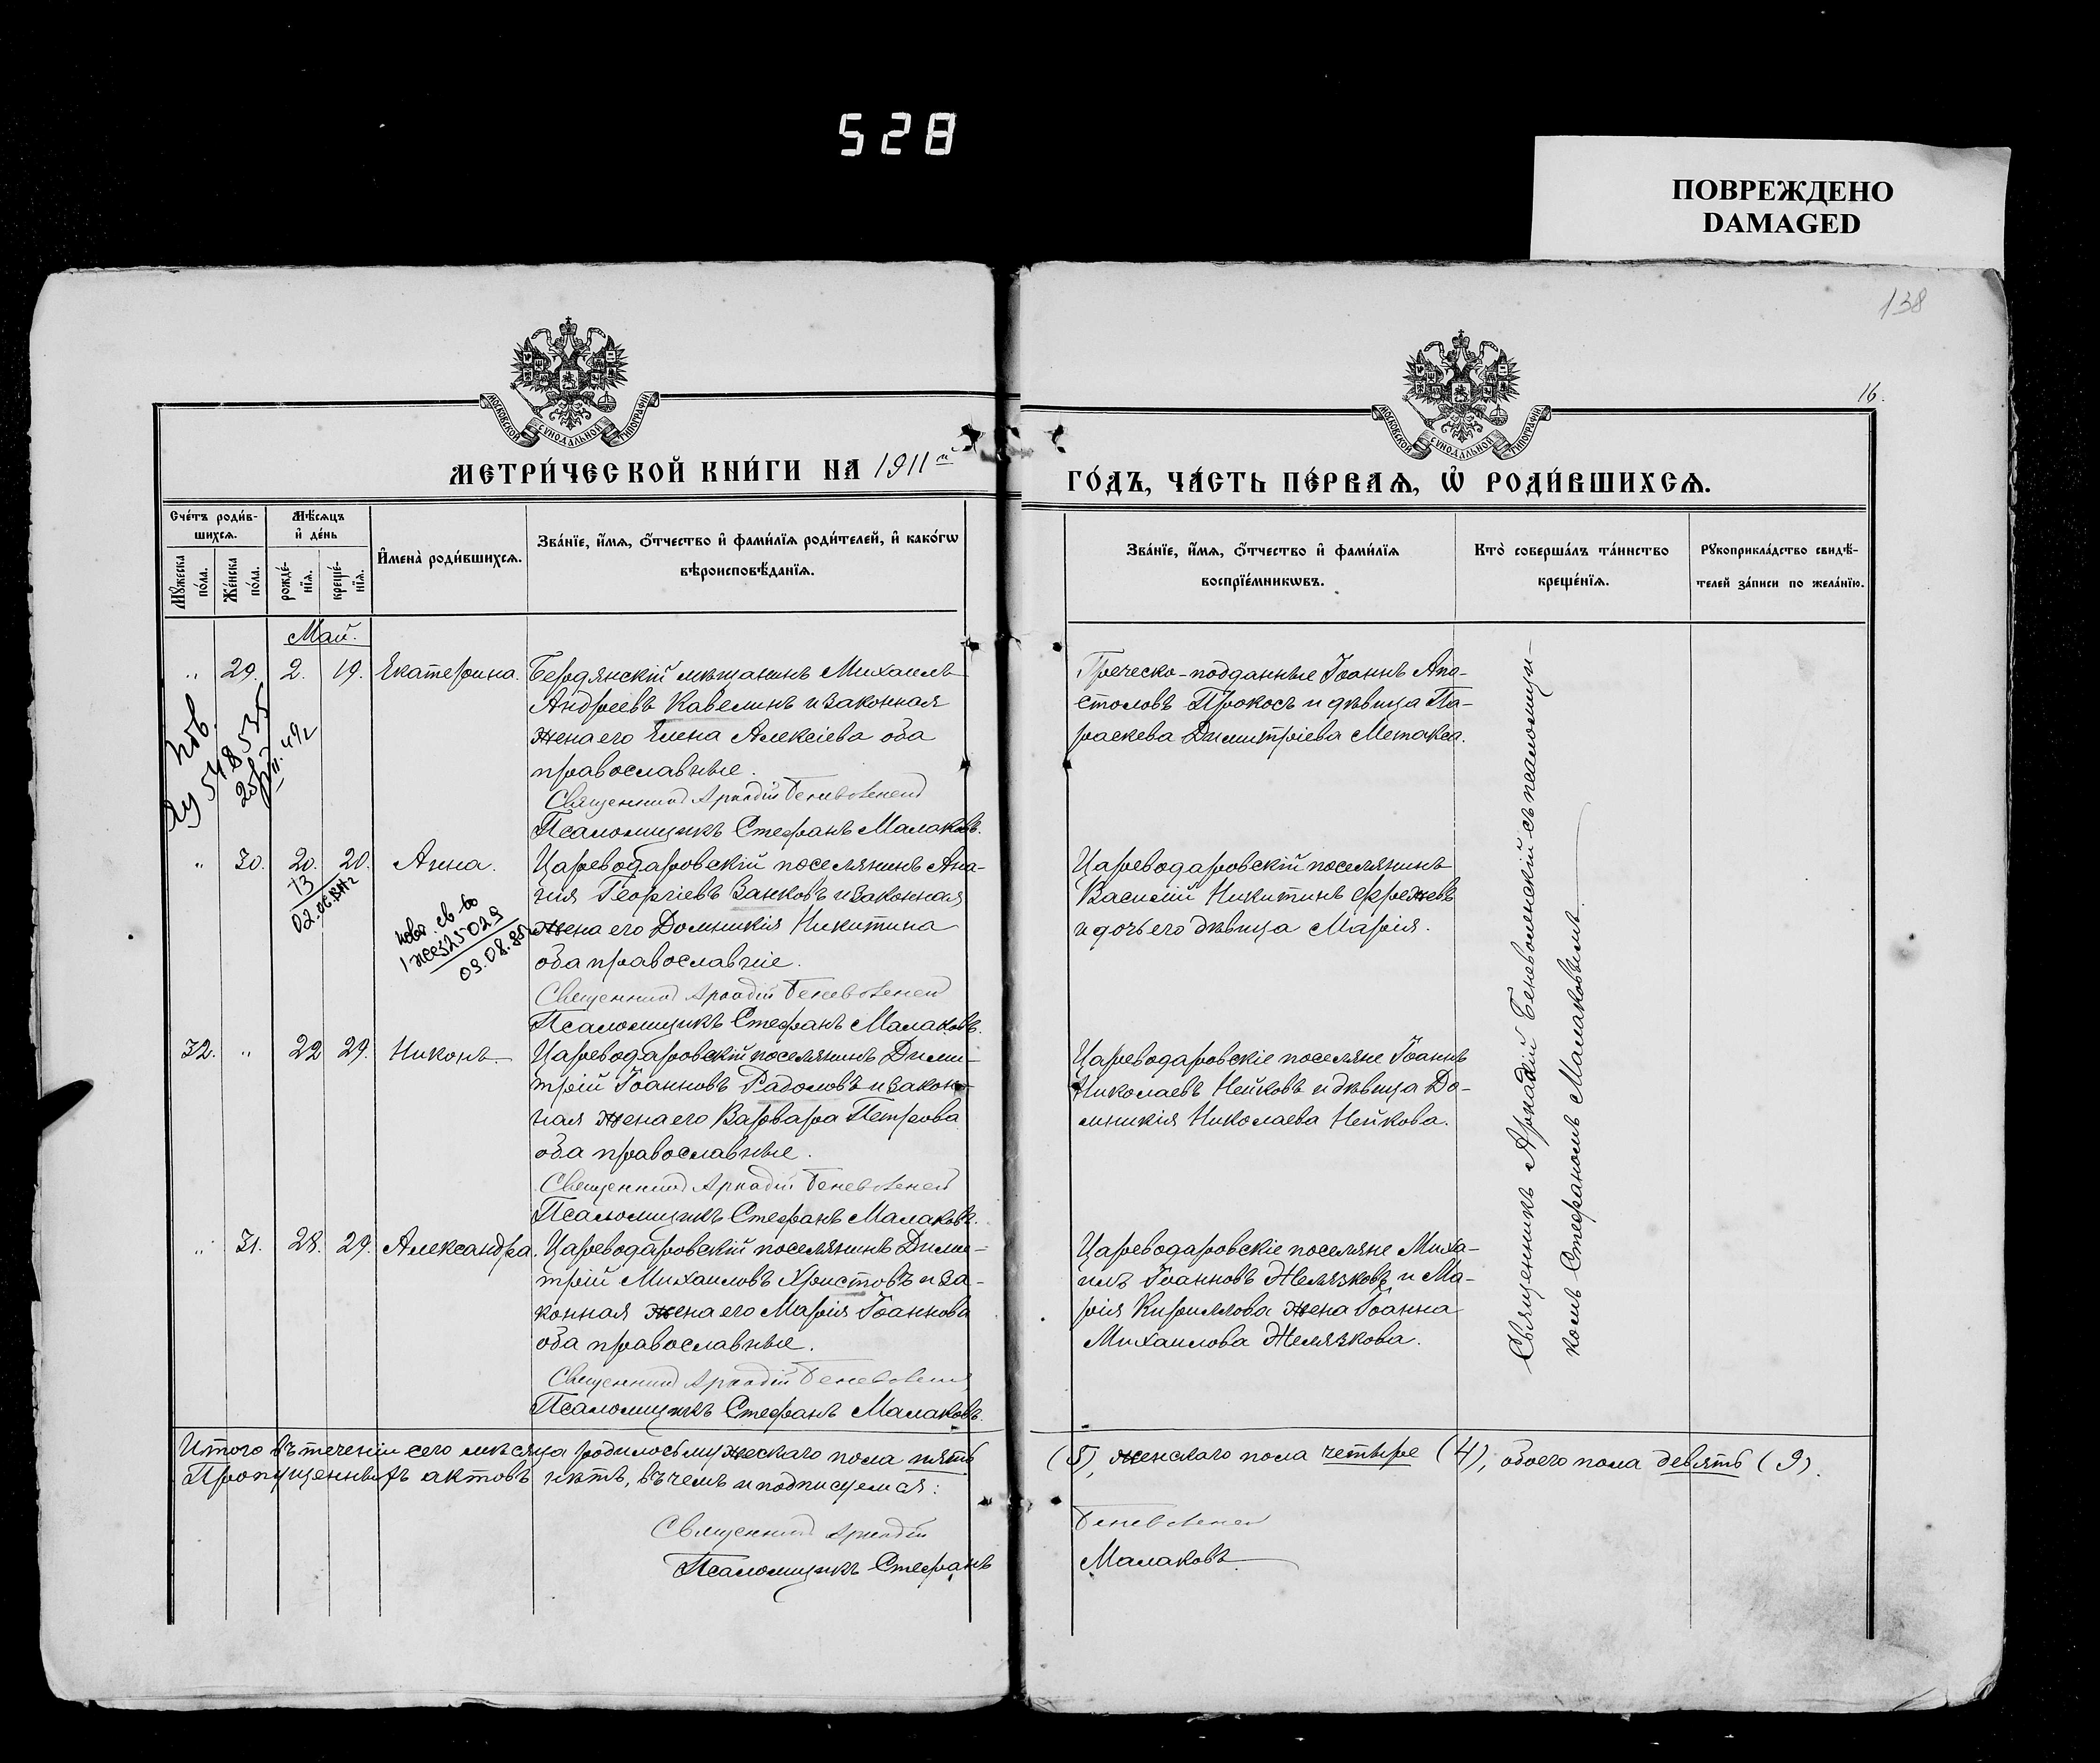 528
ПОВРЕЖДЕНО
DAMAGED
138
16.
МОСКОВСКОЙ СѴНОДАЛЬНОЙ ТИПОГРАФІИ
МОСКОВСКОЙ СѴНОДАЛЬНОЙ ТИПОГРАФІИ
МЕТРИ́ЧЕСКОЙ КНИ́ГИ НА 1911й
ГО́ДЪ, ЧА́СТЬ ПЕ́РВАѦ, Ѽ РОДИ́ВШИХСѦ.
Сче́тъ роди́в-
шихсѧ.
Мꙋ́жеска по́ла.
Же́нска по́ла.
Мѣ́сѧцъ
и҆ де́нь
рожде́-
нїѧ.
креще́-
нїѧ.
И҆мена̀ роди́вшихсѧ.
Зва́нїе, и҆́мѧ, ѻ҆́тчество и҆ фами́лїѧ роди́телей, и҆ како́гѡ
вѣроисповѣ́данїѧ.
Зва́нїе, и҆́мѧ, ѻ҆́тчество и҆ фами́лїѧ
воспрїе́мникѡвъ.
Кто̀ соверша́лъ та́инство
креще́нїѧ.
Рꙋкоприкла́дство свидѣ́-
телей за́писи по жела́нїю.
Май.
„ 29. 2. 19. Екатерина.
Бердянскій мѣщанинъ Михаилъ
Андреевъ Кавелинъ и законная
жена его Елена Алексіева оба
православные.
Священникъ Аркадій Беневоленскій
Псаломщикъ Стефанъ Малаковъ.
Греческо-подданные Іоаннъ Апо-
столовъ Прокосъ и дѣвица Па-
раскева Димитріева Метакса.
„ 30. 20. 20. Анна.
02.06.
09.08.85
Цареводаровскій поселянинъ Ана-
нія Георгіевъ Занковъ и законная
жена его Домникія Никитина
оба православніе.
Священникъ Аркадій Беневоленскій
Псаломщикъ Стефанъ Малаковъ.
Цареводаровскій поселянинъ
Василій Никитинъ
и дочь его дѣвица Марія.
32. „ 22 29. Никонъ
Цареводаровскій поселянинъ Дими-
трій Іоанновъ Радоловъ и закон-
ная жена его Варвара Петрова
оба православные.
Священникъ Аркадій Беневоленскій
Псаломщикъ Стефанъ Малаковъ.
Цареводаровскіе поселяне Іоаннъ
Николаевъ Нейковъ и дѣвица До-
мникія Николаева Нейкова.
„ 31. 28. 29. Александра.
Цареводаровскій поселянинъ Дими-
трій Михаиловъ Христовъ и за-
конная жена его Марія Іоаннова
оба православные.
Священникъ Аркадій Беневоленскій
Псаломщикъ Стефанъ Малаковъ.
Цареводаровскіе поселяне Миха-
илъ Іоанновъ Желязковъ и Ма-
рія Кириллова жена Іоанна
Михаилова Желязкова.
Священникъ Аркадій Беневоленскій съ псаломщи-
комъ Стефаномъ Малаковымъ
Итого въ теченіи сего мѣсяца родилось мужескаго пола пять (5), женскаго пола четыре (4), обоего пола девять (9).
Пропущенныхъ актовъ нѣтъ, въ чемъ и подписуемся:
Священникъ Аркадій Беневоленскій
Псаломщикъ Стефанъ Малаковъ.